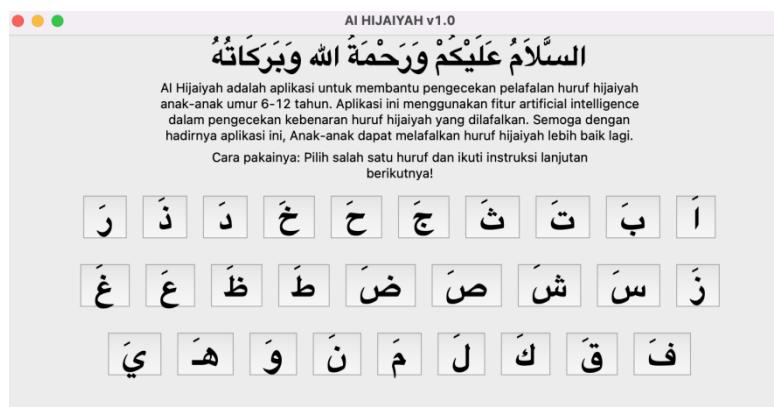 AI HIJAIYAH v1.0
السَّلاَمُ عَلَيْكُمْ وَرَحْمَةُ الله وَبَرَكَاتُهُ
Al Hijaiyah adalah aplikasi untuk membantu pengecekan pelafalan huruf hijaiyah
anak-anak umur 6-12 tahun. Aplikasi ini menggunakan fitur artificial intelligence
dalam pengecekan kebenaran huruf hijaiyah yang dilafalkan. Semoga dengan
hadirnya aplikasi ini, Anak-anak dapat melafalkan huruf hijaiyah lebih baik lagi.
Cara pakainya: Pilih salah satu huruf dan ikuti instruksi lanjutan
berikutnya!
اَ بَ تَ ثَ جَ حَ خَ دَ ذَ رَ
زَ سَ شَ صَ ضَ طَ ظَ عَ غَ
فَ قَ كَ لَ مَ نَ وَ هَـ يَ